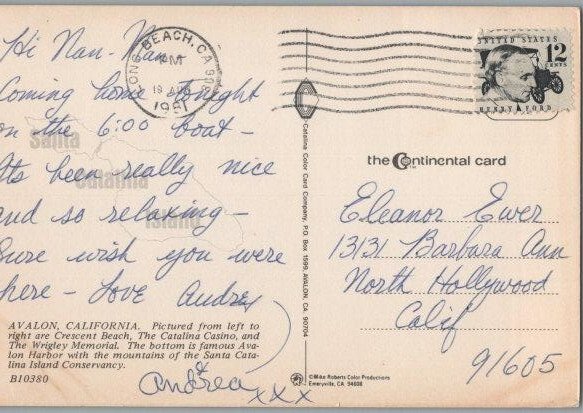 Hi Nan-
Coming home tonight
on the 6:00 boat -
Its been really nice
and so relaxing -
Sure wish you were
here - Love Andrea
Andrea
xxx
Santa
Catalina
Island
AVALON, CALIFORNIA. Pictured from left to
right are Crescent Beach, The Catalina Casino, and
The Wrigley Memorial. The bottom is famous Ava-
lon Harbor with the mountains of the Santa Cata-
lina Island Conservancy.
B10380
LONG BEACH, CA
PM
18
1981
UNITED STATES
12
CENTS
HENRY FORD
Catalina Color Card Company, P.O. Box 1599, AVALON, CA 90704
the Continental card
Eleanor Ewer
13131 Barbara Ann
North Hollywood
Calif
91605
©Mike Roberts Color Productions
Emeryville, CA 94608